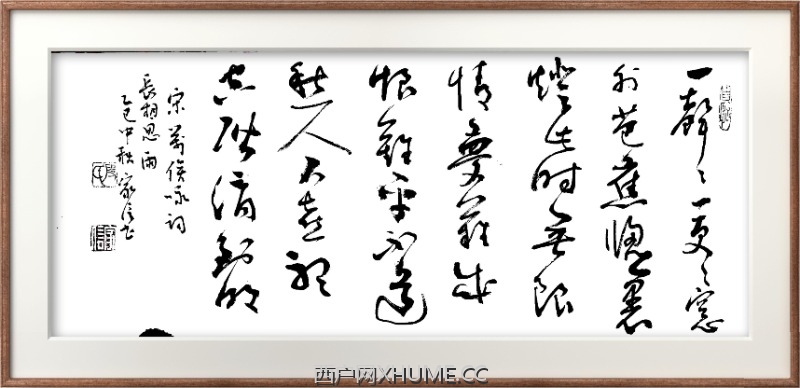 一聲〻一更〻窓
外芭蕉窗裏
燈此時無限
情夢難成
恨難平不道
愁人不喜聽
空階滴到明
宋萬俟咏詞
長相思雨
乙巳中秋家
西户网XHUME.CC